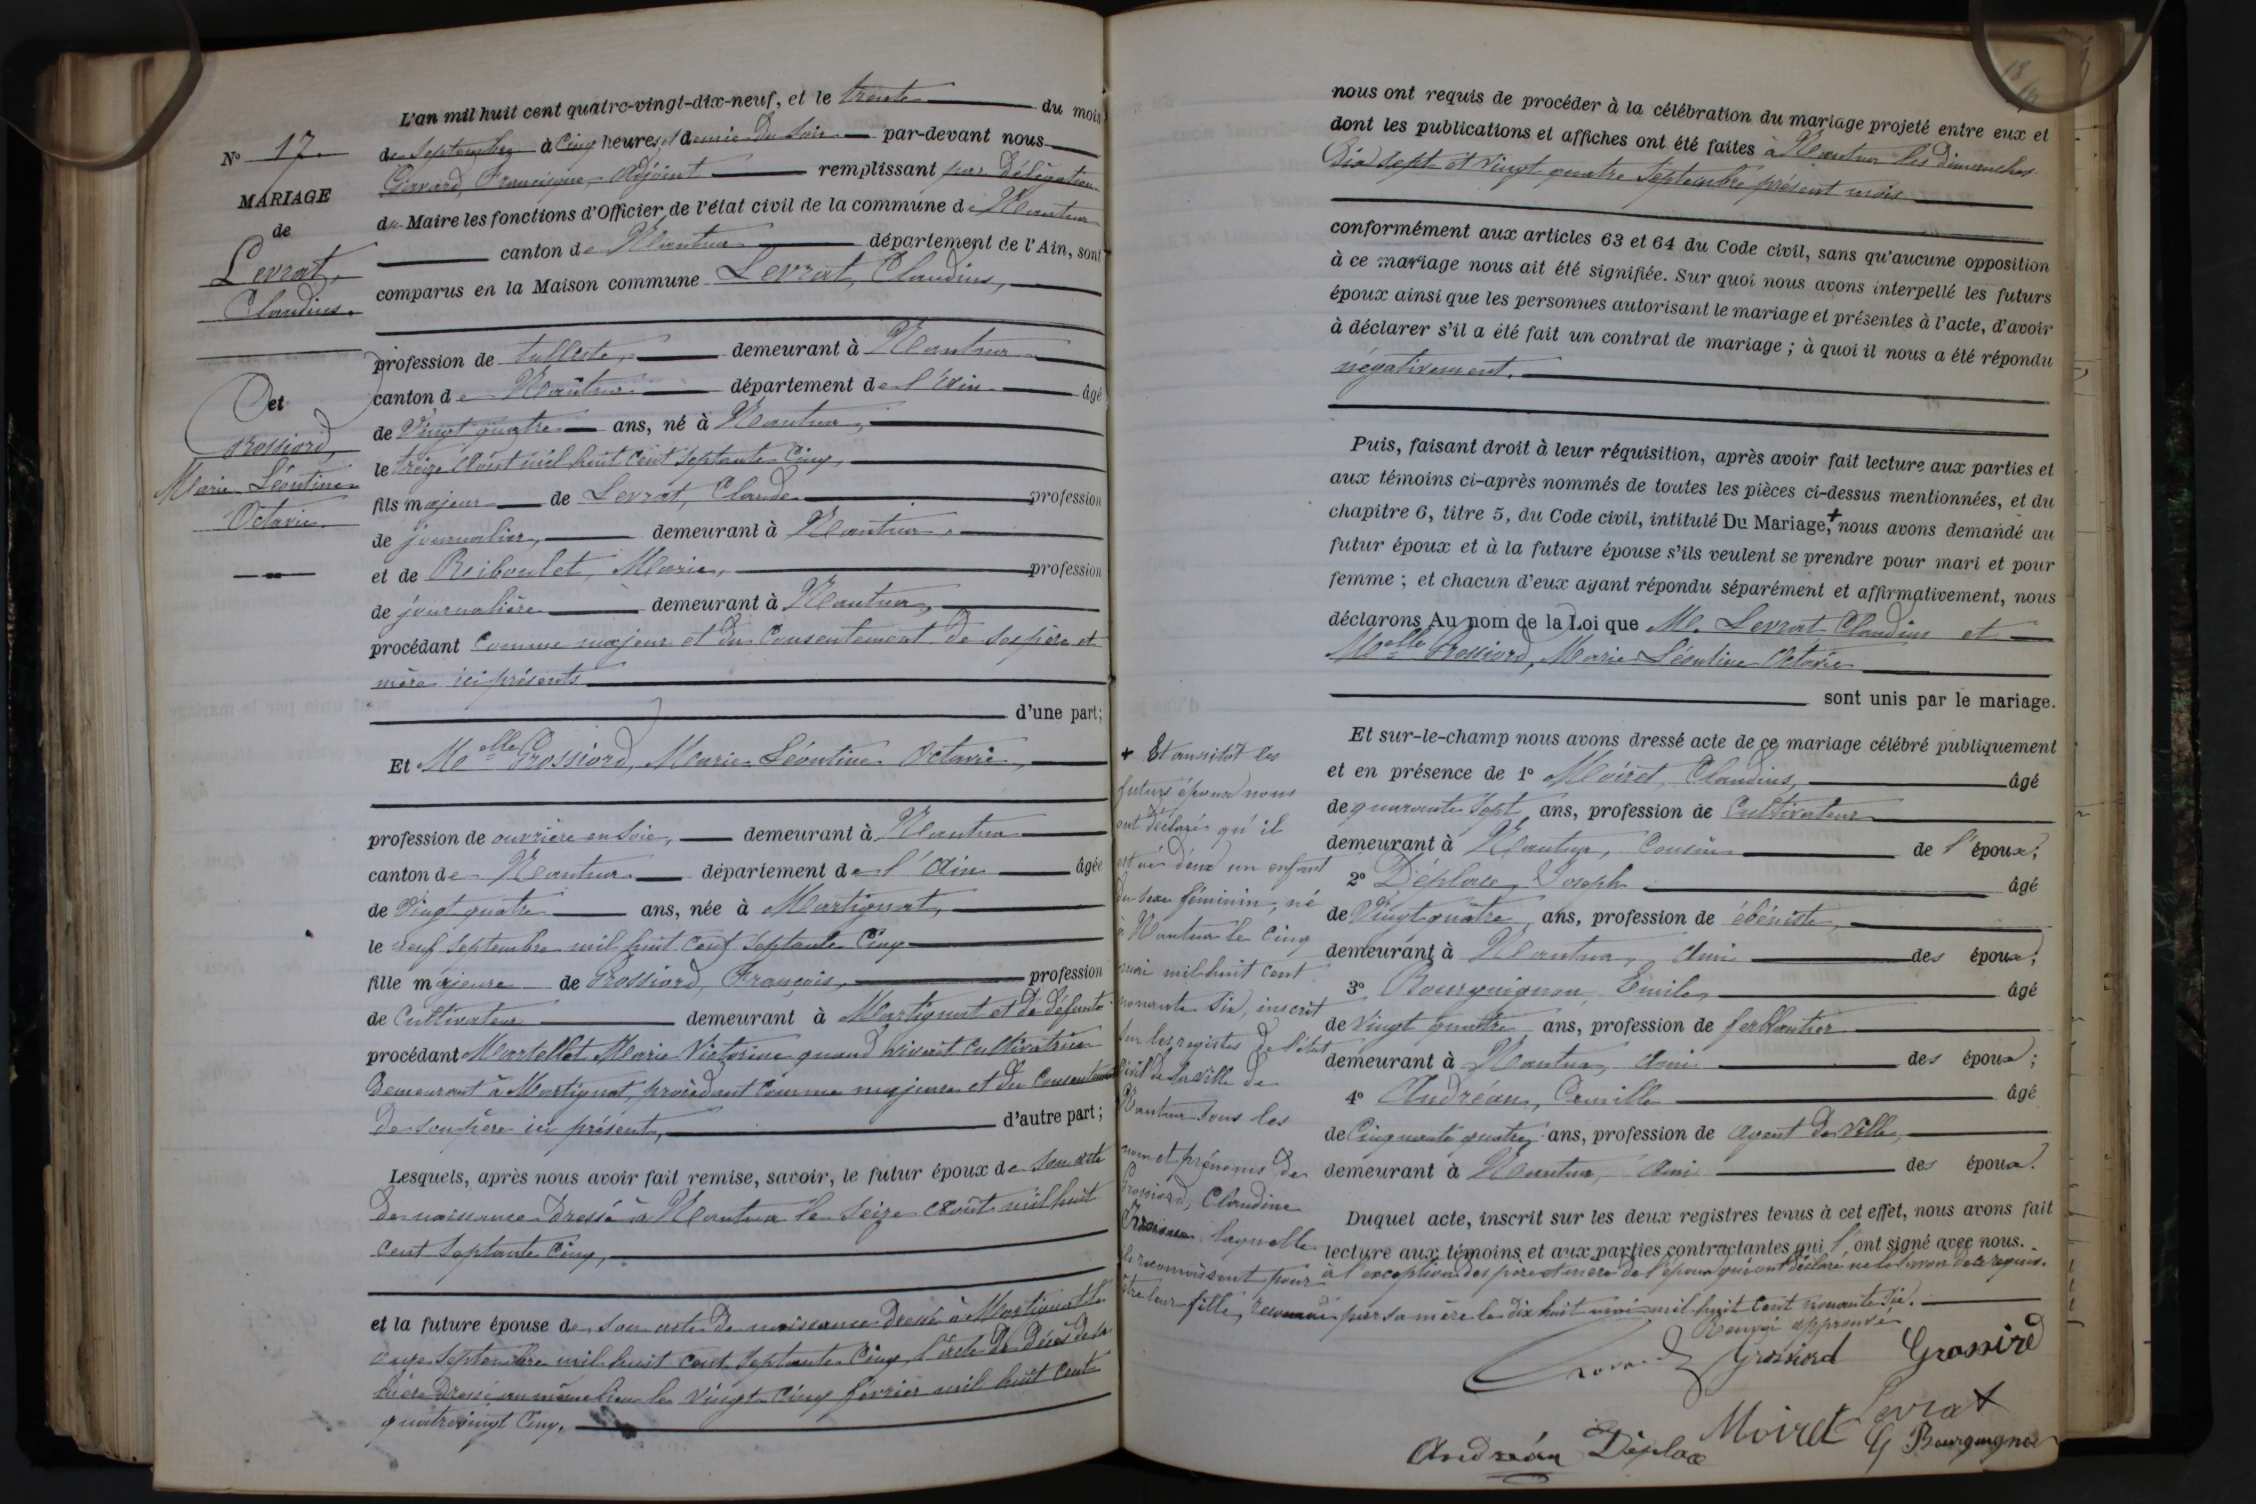 L'an mil huit cent quatre-vingt-dix-neuf, et le trente du mois
N° 17.
de Septembre à Cinq heures et demie du Soir par-devant nous
Francisque, Adjoint remplissant par délégation
MARIAGE
du Maire les fonctions d'Officier de l'état civil de la commune de Nantua
de
canton de Nantua département de l'Ain, sont
Levrat,
comparus en la Maison commune Levrat, Claudius,
Claudius.
profession de tulliste, demeurant à Nantua
canton de Nantua département de l'Ain âgé
et
de Vingt quatre ans, né à Nantua,
Grossiord,
le treize Août mil huit cent septante Cinq,
Marie Léontine
fils majeur de Levrat, Claude profession
Octavie.
de journalier, demeurant à Nantua,
et de Reiboulet, Marie, profession
de journalière demeurant à Nantua,
procédant Comme majeur et du Consentement de ses père et
mère ici présents
d'une part;
Et Melle Grossiord, Marie Léontine Octavie,
profession de ouvrière en Soie, demeurant à Nantua
canton de Nantua département de l'Ain âgée
de Vingt quatre ans, née à Martignat,
le neuf Septembre mil huit Cent Septante Cinq
fille majeure de Grossiord, François, profession
de Cultivateur demeurant à Martignat et de défunte
procédant Martellet Marie Victorine quand vivait Cultivatrice
demeurant à Martignat, procédant Comme majeure et du Consentement
de son père ici présent, d'autre part;
Lesquels, après nous avoir fait remise, savoir, le futur époux de Son acte
de naissance dressé à Nantua le Seize Août mil huit
Cent Septante Cinq,
et la future épouse de Son acte de naissance dressé à Martignat le
onze Septembre mil huit Cent Septante Cinq, l'acte de Décès de sa
mère dressé au même lieu le Vingt Cinq février mil huit Cent
quatre vingt Cinq.
18
nous ont requis de procéder à la célébration du mariage projeté entre eux et
dont les publications et affiches ont été faites à Nantua les dimanches
Dix Sept et Vingt quatre Septembre présent mois
conformément aux articles 63 et 64 du Code civil, sans qu'aucune opposition
à ce mariage nous ait été signifiée. Sur quoi nous avons interpellé les futurs
époux ainsi que les personnes autorisant le mariage et présentes à l'acte, d'avoir
à déclarer s'il a été fait un contrat de mariage; à quoi il nous a été répondu
négativement.
Puis, faisant droit à leur réquisition, après avoir fait lecture aux parties et
aux témoins ci-après nommés de toutes les pièces ci-dessus mentionnées, et du
chapitre 6, titre 5, du Code civil, intitulé Du Mariage,+ nous avons demandé au
futur époux et à la future épouse s'ils veulent se prendre pour mari et pour
femme; et chacun d'eux ayant répondu séparément et affirmativement, nous
déclarons Au nom de la Loi que M. Levrat Claudius et
Melle Grossiord, Marie Léontine Octavie
sont unis par le mariage.
Et sur-le-champ nous avons dressé acte de ce mariage célébré publiquement
et en présence de 1° Moiret, Claudius, âgé
de quarante Sept ans, profession de Cultivateur
demeurant à Nantua, Cousin de l'époux;
2° Déplace, Joseph âgé
de Vingt quatre ans, profession de ébéniste,
demeurant à Nantua, Ami des époux;
3° Bourguignon, Emile, âgé
de Vingt quatre ans, profession de ferblantier
demeurant à Nantua, Ami des époux;
4° Andréan, Camille âgé
de Cinquante quatre ans, profession de Agent de Ville,
demeurant à Nantua, Ami des époux.
Duquel acte, inscrit sur les deux registres tenus à cet effet, nous avons fait
lecture aux témoins et aux parties contractantes qui l'ont signé avec nous.
à l'exception des père et mère de l'époux qui ont déclaré ne le Savoir de ce requis.
+ Et aussitôt les
futurs époux nous
ont déclaré qu'il
est né d'eux un enfant
du sexe féminin, né
à Nantua le Cinq
mai mil huit cent
nonante Six, inscrit
Sur les registres de l'état
Civil de la Ville de
Nantua Sous les
nom et prénoms de
Grossiord, Claudine
laquelle
ils reconnaissent pour
être leur fille, reconnue par sa mère le dix huit mai mil huit Cent nonante Six.
Renvoi approuvé
Grossiord Grossird
Levrat
Moiret
Andréan Déplace E Bourguignon